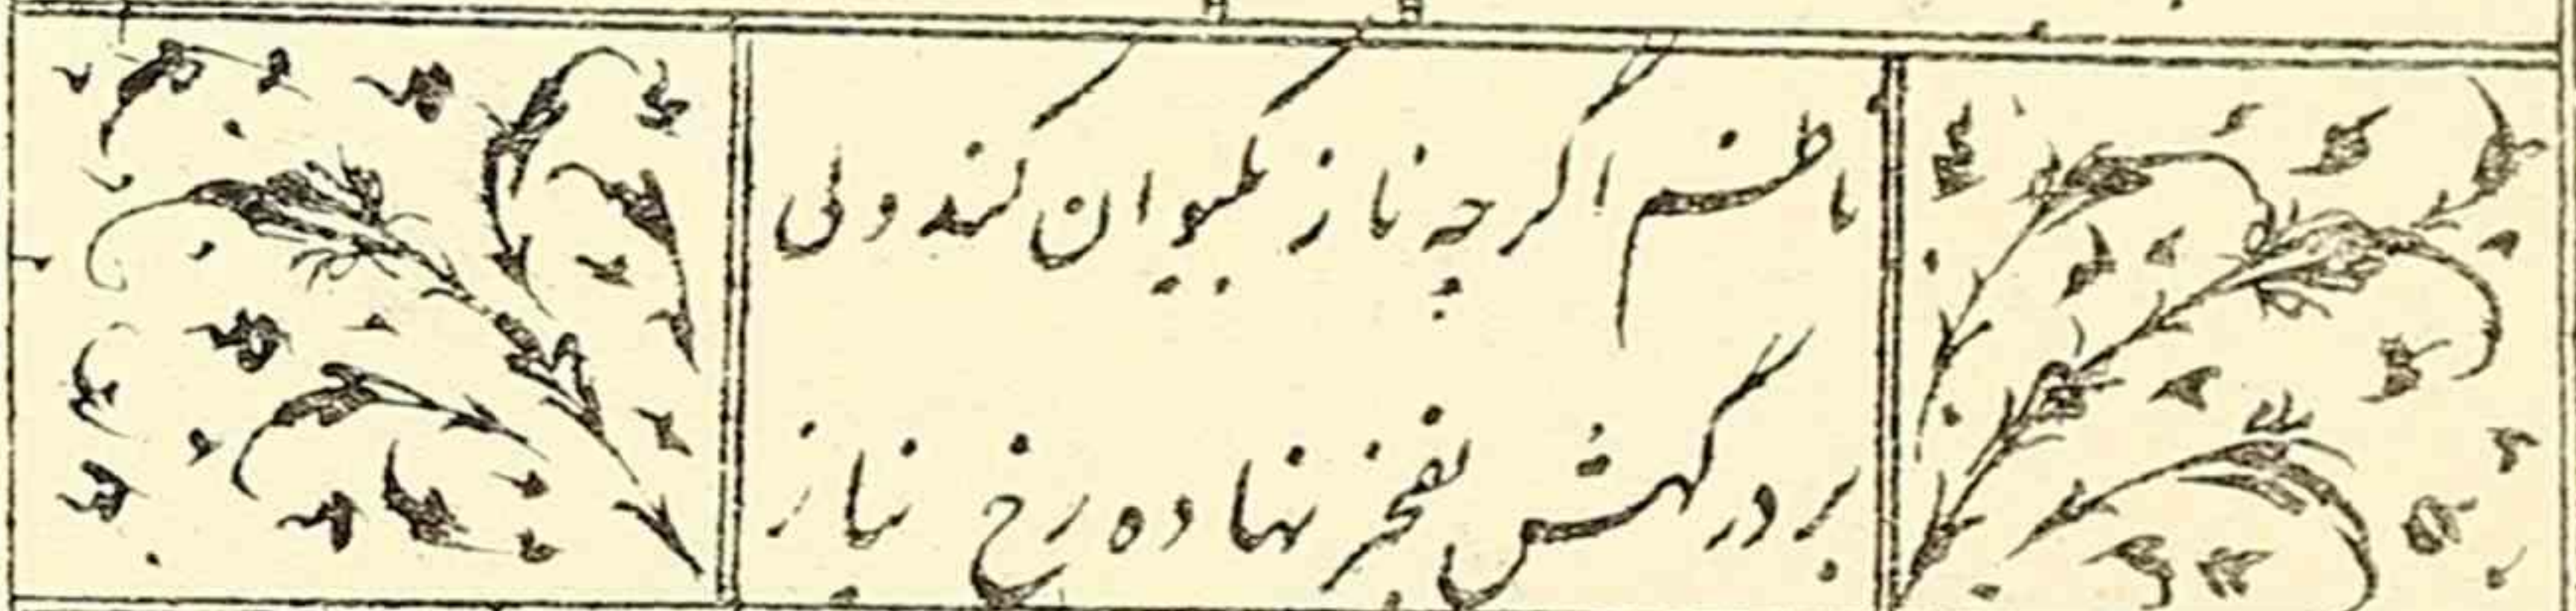 ناظم اگرچه ناز بکیوان کند ولی
بر درگهش بفخر نهاده رخ نیاز